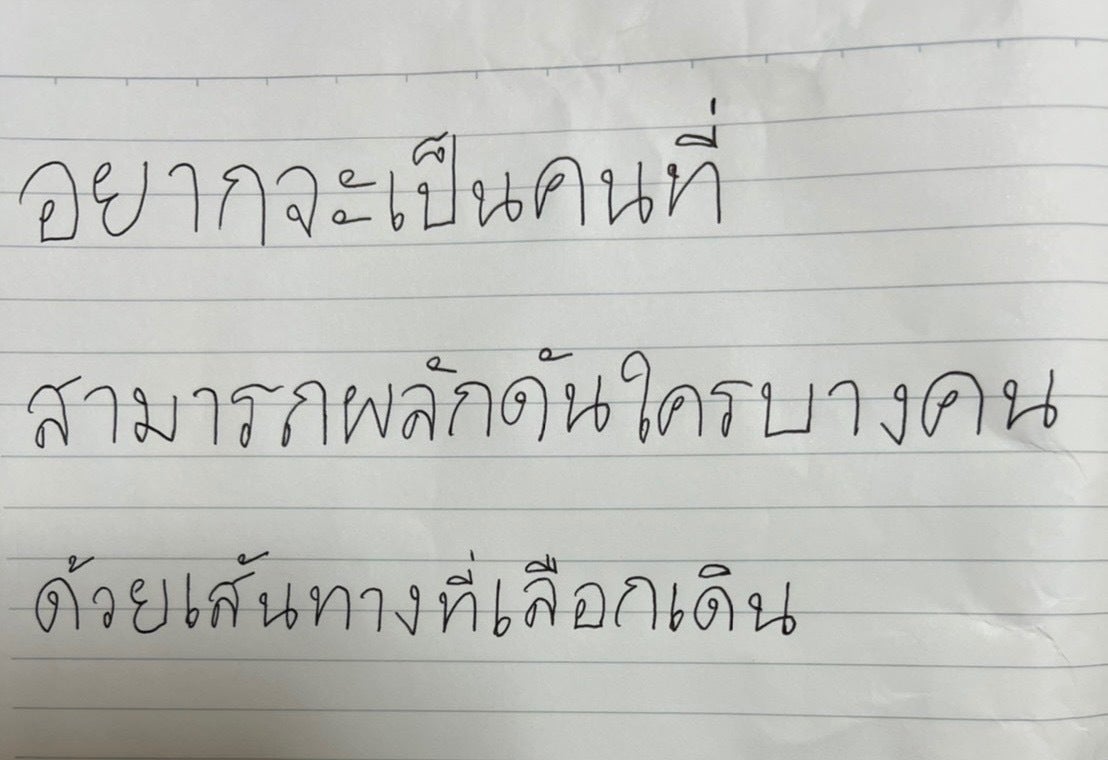 อยากจะเป็นคนที่
สามารถผลักดันใครบางคน
ด้วยเส้นทางที่เลือกเดิน